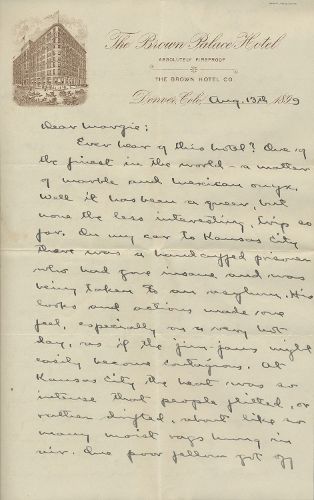 The Brown Palace Hotel
ABSOLUTELY FIREPROOF
THE BROWN HOTEL CO.
Denver, Colo. Aug. 13th 1899
Dear Margie:
Ever hear of this hotel? One of
the finest in the world - a matter
of marble and mexican onyx.
Well it has been a queer, but
none the less interesting, trip so
far. On my car to Kansas City
there was a handcuffed prisoner
who had gone insane and was
being taken to an asylum. His
looks and actions made one
feel, especially on a very hot
day, as if the jim-jams might
easily become contagious. At
Kansas City the heat was so
intense that people flitted, or
rather drifted, about like so
many moist rags hung in
air. One poor fellow got off